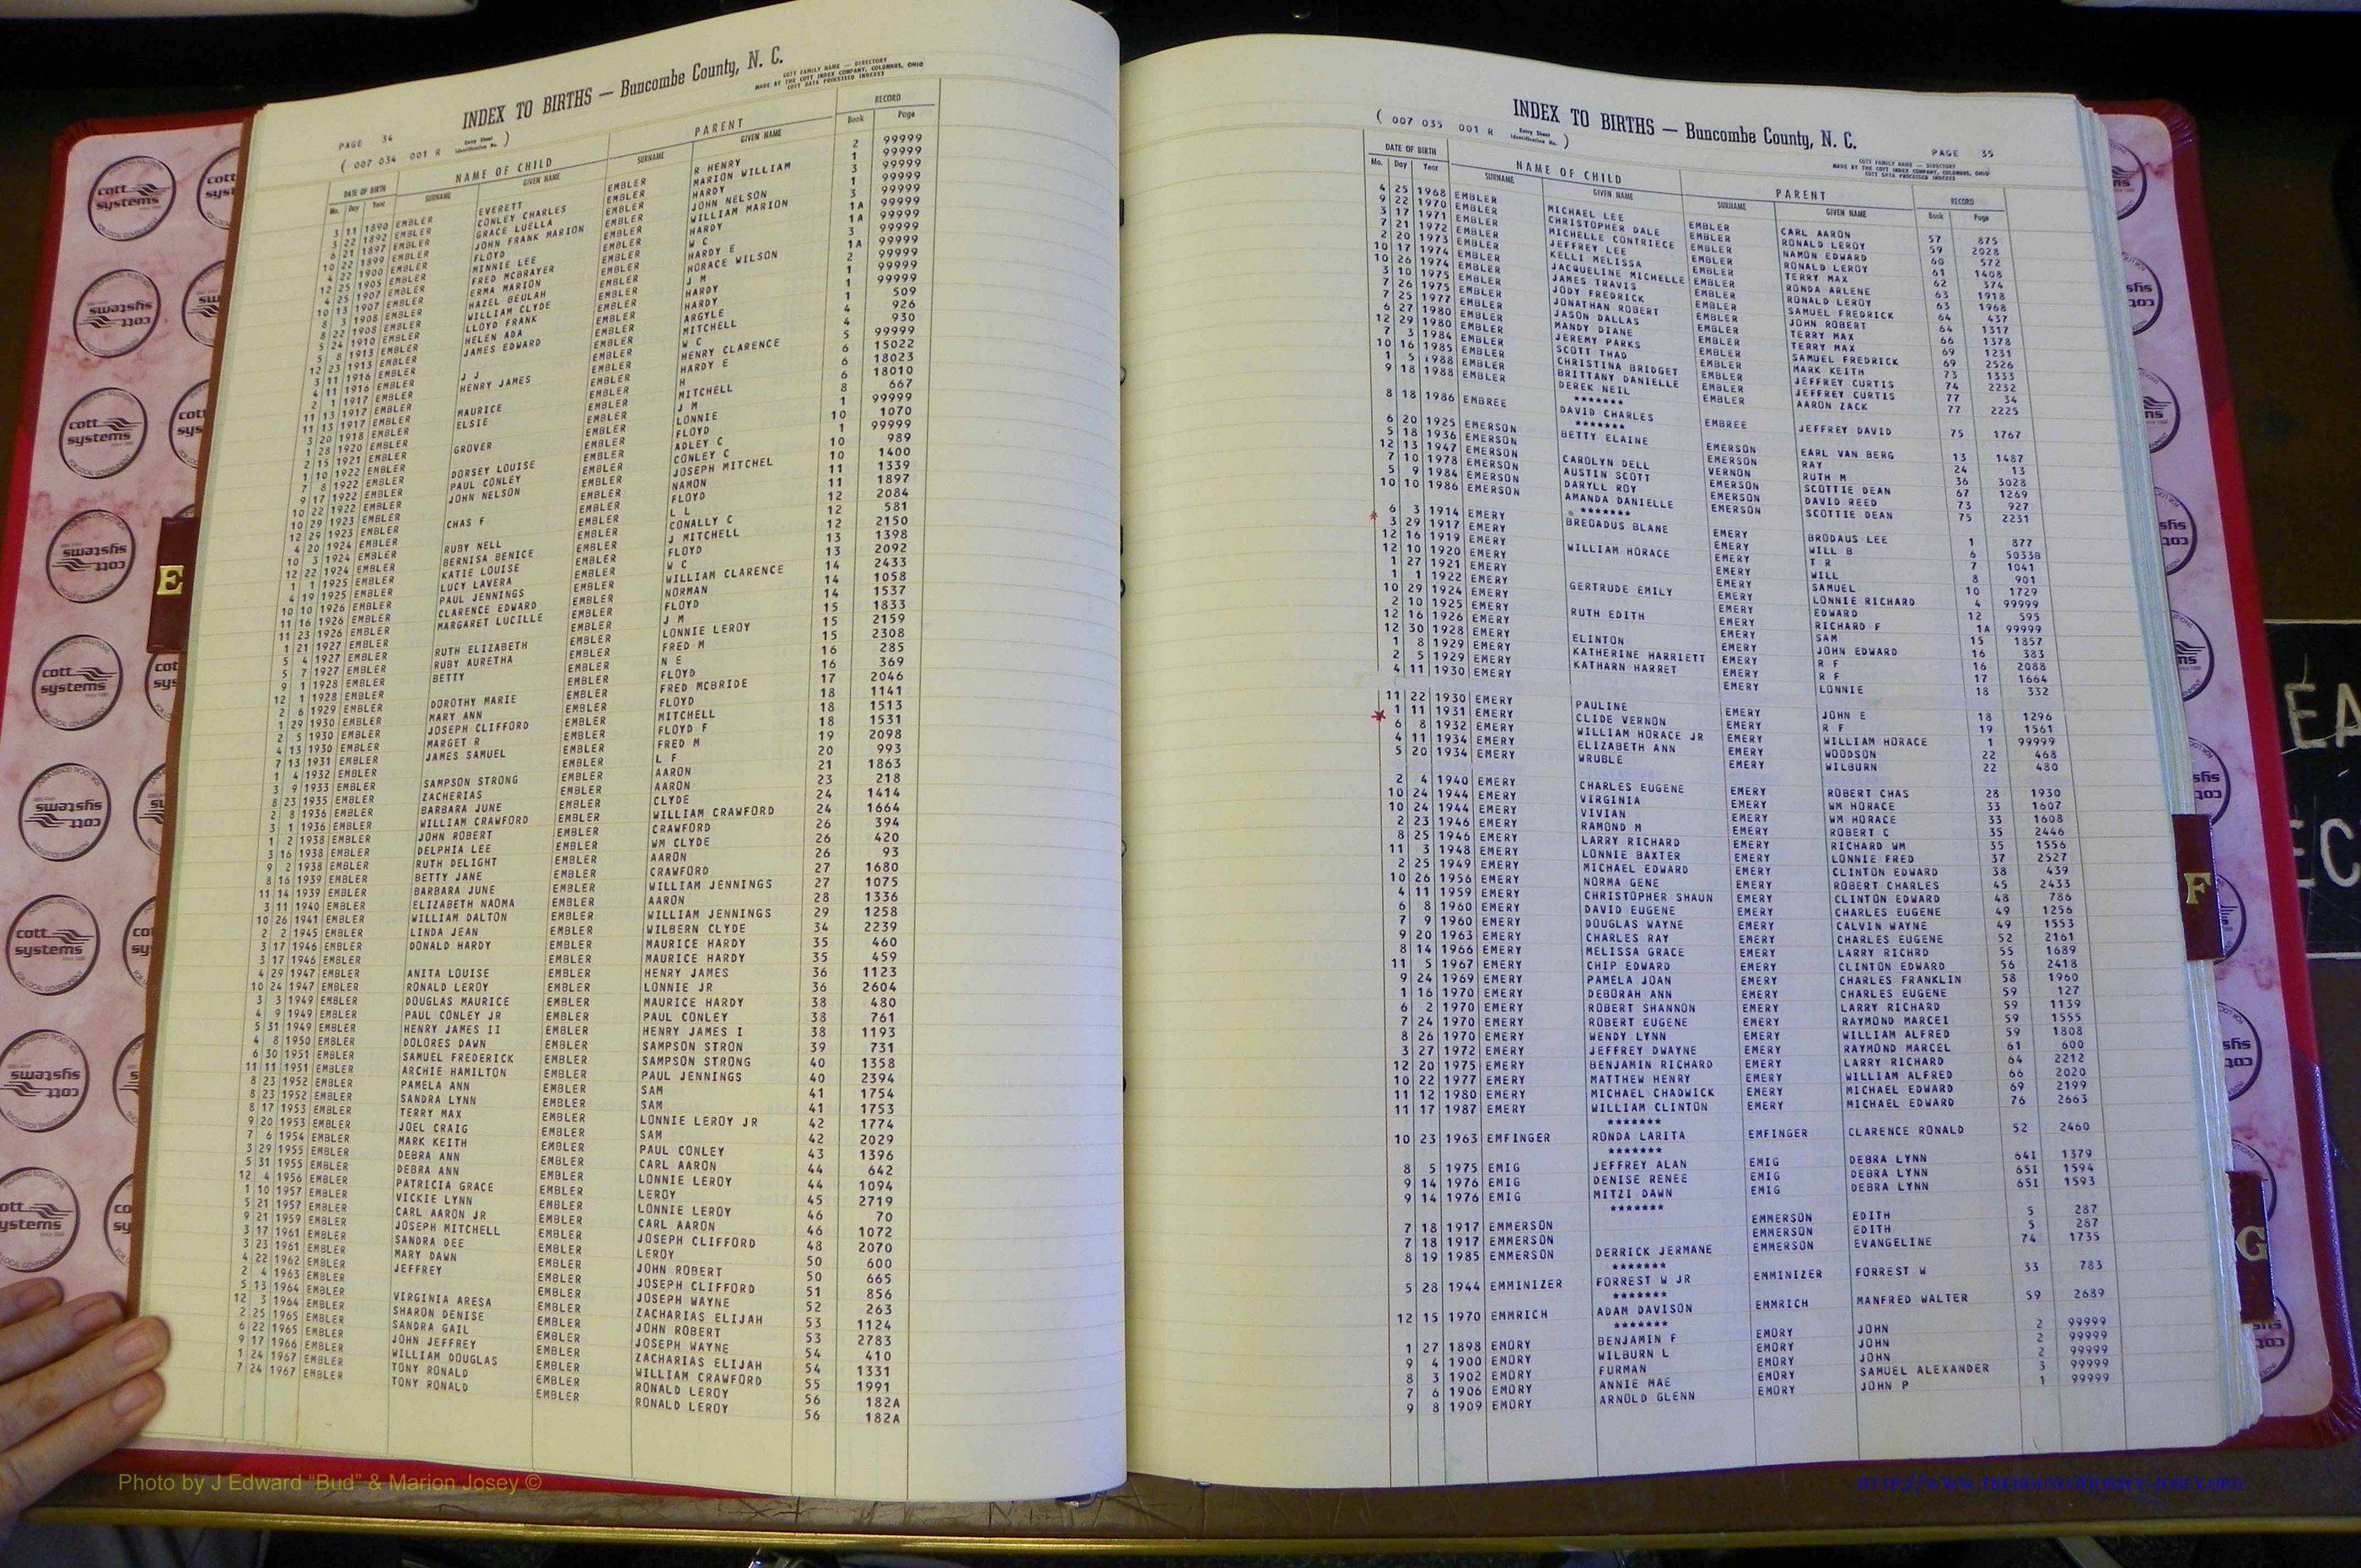 INDEX TO BIRTHS — Buncombe County, N. C.
COTT FAMILY NAME — DIRECTORY
MADE BY THE COTT INDEX COMPANY, COLUMBUS, OHIO
COTT DATA PROCESSED INDEXES
PAGE 34
( 007 034 001 R Entry Sheet Identification No. )
DATE OF BIRTH NAME OF CHILD PARENT RECORD
Mo. Day Year SURNAME GIVEN NAME SURNAME GIVEN NAME Book Page
3 11 1890 EMBLER EVERETT EMBLER R HENRY 2 99999
3 22 1892 EMBLER CONLEY CHARLES EMBLER MARION WILLIAM 1 99999
6 21 1897 EMBLER GRACE LUELLA EMBLER HARDY 3 99999
10 22 1899 EMBLER JOHN FRANK MARION EMBLER JOHN NELSON 1 99999
4 22 1900 EMBLER FLOYD EMBLER WILLIAM MARION 3 99999
12 25 1905 EMBLER MINNIE LEE EMBLER HARDY 1A 99999
4 25 1907 EMBLER FRED MCBRAYER EMBLER W C 1A 99999
10 13 1907 EMBLER ERMA MARION EMBLER HARDY E 3 99999
8 3 1908 EMBLER HAZEL BEULAH EMBLER HORACE WILSON 1A 99999
8 22 1908 EMBLER WILLIAM CLYDE EMBLER J M 2 99999
5 24 1910 EMBLER LLOYD FRANK EMBLER HARDY 1 99999
5 8 1913 EMBLER HELEN ADA EMBLER HARDY 1 99999
12 23 1913 EMBLER JAMES EDWARD EMBLER ARGYLE 1 509
3 11 1916 EMBLER EMBLER MITCHELL 4 926
4 11 1916 EMBLER J J EMBLER W C 4 930
2 1 1917 EMBLER HENRY JAMES EMBLER HENRY CLARENCE 5 99999
11 13 1917 EMBLER EMBLER HARDY E 6 15022
11 13 1917 EMBLER MAURICE EMBLER H 6 18023
3 20 1918 EMBLER ELSIE EMBLER MITCHELL 6 18010
1 28 1920 EMBLER EMBLER J M 8 667
2 15 1921 EMBLER GROVER EMBLER LONNIE 1 99999
1 10 1922 EMBLER EMBLER FLOYD 10 1070
7 8 1922 EMBLER DORSEY LOUISE EMBLER ADLEY C 1 99999
9 17 1922 EMBLER PAUL CONLEY EMBLER CONLEY C 10 989
10 22 1922 EMBLER JOHN NELSON EMBLER JOSEPH MITCHEL 10 1400
10 29 1923 EMBLER EMBLER NAMON 11 1339
12 29 1923 EMBLER CHAS F EMBLER FLOYD 11 1897
4 20 1924 EMBLER EMBLER L L 12 2084
10 3 1924 EMBLER RUBY NELL EMBLER CONALLY C 12 581
12 22 1924 EMBLER BERNISA BENICE EMBLER J MITCHELL 12 2150
1 1 1925 EMBLER KATIE LOUISE EMBLER FLOYD 13 1398
4 19 1925 EMBLER LUCY LAVERA EMBLER W C 13 2092
10 10 1926 EMBLER PAUL JENNINGS EMBLER WILLIAM CLARENCE 14 2433
11 16 1926 EMBLER CLARENCE EDWARD EMBLER NORMAN 14 1058
11 23 1926 EMBLER MARGARET LUCILLE EMBLER FLOYD 14 1537
1 21 1927 EMBLER EMBLER J M 15 1833
5 4 1927 EMBLER RUTH ELIZABETH EMBLER LONNIE LEROY 15 2159
5 7 1927 EMBLER RUBY AURETHA EMBLER FRED M 15 2308
9 1 1928 EMBLER BETTY EMBLER N E 16 285
12 1 1928 EMBLER EMBLER FLOYD 16 369
2 6 1929 EMBLER DOROTHY MARIE EMBLER FRED MCBRIDE 17 2046
1 29 1930 EMBLER MARY ANN EMBLER FLOYD 18 1141
2 5 1930 EMBLER JOSEPH CLIFFORD EMBLER MITCHELL 18 1513
4 13 1930 EMBLER MARGET R EMBLER FLOYD F 18 1531
7 13 1931 EMBLER JAMES SAMUEL EMBLER FRED M 19 2098
1 4 1932 EMBLER EMBLER L F 20 993
3 9 1933 EMBLER SAMPSON STRONG EMBLER AARON 21 1863
8 23 1935 EMBLER ZACHERIAS EMBLER AARON 23 218
2 8 1936 EMBLER BARBARA JUNE EMBLER CLYDE 24 1414
3 1 1936 EMBLER WILLIAM CRAWFORD EMBLER WILLIAM CRAWFORD 24 1664
1 2 1938 EMBLER JOHN ROBERT EMBLER CRAWFORD 26 394
3 16 1938 EMBLER DELPHIA LEE EMBLER WM CLYDE 26 420
9 2 1938 EMBLER RUTH DELIGHT EMBLER AARON 26 93
8 16 1939 EMBLER BETTY JANE EMBLER CRAWFORD 27 1680
11 14 1939 EMBLER BARBARA JUNE EMBLER WILLIAM JENNINGS 27 1075
3 11 1940 EMBLER ELIZABETH NAOMA EMBLER AARON 28 1336
10 26 1941 EMBLER WILLIAM DALTON EMBLER WILLIAM JENNINGS 29 1258
2 2 1945 EMBLER LINDA JEAN EMBLER WILBERN CLYDE 34 2239
3 17 1946 EMBLER DONALD HARDY EMBLER MAURICE HARDY 35 460
3 17 1946 EMBLER EMBLER MAURICE HARDY 35 459
4 29 1947 EMBLER ANITA LOUISE EMBLER HENRY JAMES 36 1123
10 24 1947 EMBLER RONALD LEROY EMBLER LONNIE JR 36 2604
3 3 1949 EMBLER DOUGLAS MAURICE EMBLER MAURICE HARDY 38 480
4 9 1949 EMBLER PAUL CONLEY JR EMBLER PAUL CONLEY 38 761
5 31 1949 EMBLER HENRY JAMES II EMBLER HENRY JAMES I 38 1193
4 8 1950 EMBLER DOLORES DAWN EMBLER SAMPSON STRON 39 731
6 30 1951 EMBLER SAMUEL FREDERICK EMBLER SAMPSON STRONG 40 1358
11 11 1951 EMBLER ARCHIE HAMILTON EMBLER PAUL JENNINGS 40 2394
8 23 1952 EMBLER PAMELA ANN EMBLER SAM 41 1754
8 23 1952 EMBLER SANDRA LYNN EMBLER SAM 41 1753
8 17 1953 EMBLER TERRY MAX EMBLER LONNIE LEROY JR 42 1774
9 20 1953 EMBLER JOEL CRAIG EMBLER SAM 42 2029
7 6 1954 EMBLER MARK KEITH EMBLER PAUL CONLEY 43 1396
3 29 1955 EMBLER DEBRA ANN EMBLER CARL AARON 44 642
5 31 1955 EMBLER DEBRA ANN EMBLER LONNIE LEROY 44 1094
12 4 1956 EMBLER PATRICIA GRACE EMBLER LEROY 45 2719
1 10 1957 EMBLER VICKIE LYNN EMBLER LONNIE LEROY 46 70
5 21 1957 EMBLER CARL AARON JR EMBLER CARL AARON 46 1072
9 21 1959 EMBLER JOSEPH MITCHELL EMBLER JOSEPH CLIFFORD 48 2070
3 17 1961 EMBLER SANDRA DEE EMBLER LEROY 50 600
3 23 1961 EMBLER MARY DAWN EMBLER JOHN ROBERT 50 665
4 22 1962 EMBLER JEFFREY EMBLER JOSEPH CLIFFORD 51 856
2 4 1963 EMBLER EMBLER JOSEPH WAYNE 52 263
5 13 1964 EMBLER VIRGINIA ARESA EMBLER ZACHARIAS ELIJAH 53 1124
12 3 1964 EMBLER SHARON DENISE EMBLER JOHN ROBERT 53 2783
2 25 1965 EMBLER SANDRA GAIL EMBLER JOSEPH WAYNE 54 410
6 22 1965 EMBLER JOHN JEFFREY EMBLER ZACHARIAS ELIJAH 54 1331
9 17 1966 EMBLER WILLIAM DOUGLAS EMBLER WILLIAM CRAWFORD 55 1991
1 24 1967 EMBLER TONY RONALD EMBLER RONALD LEROY 56 182A
7 24 1967 EMBLER TONY RONALD EMBLER RONALD LEROY 56 182A
INDEX TO BIRTHS — Buncombe County, N. C.
( 007 035 001 R Entry Sheet Identification No. )
PAGE 35
COTT FAMILY NAME — DIRECTORY
MADE BY THE COTT INDEX COMPANY, COLUMBUS, OHIO
COTT DATA PROCESSED INDEXES
DATE OF BIRTH NAME OF CHILD PARENT RECORD
Mo. Day Year SURNAME GIVEN NAME SURNAME GIVEN NAME Book Page
4 25 1968 EMBLER MICHAEL LEE EMBLER CARL AARON 57 875
9 22 1970 EMBLER CHRISTOPHER DALE EMBLER RONALD LEROY 59 2028
3 17 1971 EMBLER MICHELLE CONTRIECE EMBLER NAMON EDWARD 60 572
7 21 1972 EMBLER JEFFREY LEE EMBLER RONALD LEROY 61 1408
2 20 1973 EMBLER KELLI MELISSA EMBLER TERRY MAX 62 374
10 17 1974 EMBLER JACQUELINE MICHELLE EMBLER RONDA ARLENE 63 1918
10 26 1974 EMBLER JAMES TRAVIS EMBLER RONALD LEROY 63 1968
3 10 1975 EMBLER JODY FREDRICK EMBLER SAMUEL FREDRICK 64 437
7 26 1975 EMBLER JONATHAN ROBERT EMBLER JOHN ROBERT 64 1317
7 25 1977 EMBLER JASON DALLAS EMBLER TERRY MAX 66 1378
6 27 1980 EMBLER MANDY DIANE EMBLER TERRY MAX 69 1231
12 29 1980 EMBLER JEREMY PARKS EMBLER SAMUEL FREDRICK 69 2526
7 3 1984 EMBLER SCOTT THAD EMBLER MARK KEITH 73 1333
10 16 1985 EMBLER CHRISTINA BRIDGET EMBLER JEFFREY CURTIS 74 2232
1 5 1988 EMBLER BRITTANY DANIELLE EMBLER JEFFREY CURTIS 77 34
9 18 1988 EMBLER DEREK NEIL EMBLER AARON ZACK 77 2225
*******
8 18 1986 EMBREE DAVID CHARLES EMBREE JEFFREY DAVID 75 1767
*******
6 20 1925 EMERSON BETTY ELAINE EMERSON EARL VAN BERG 13 1487
5 18 1936 EMERSON EMERSON RAY 24 13
12 13 1947 EMERSON CAROLYN DELL VERNON RUTH M 36 3028
7 10 1978 EMERSON AUSTIN SCOTT EMERSON SCOTTIE DEAN 67 1269
5 9 1984 EMERSON DARYLL ROY EMERSON DAVID REED 73 927
10 10 1986 EMERSON AMANDA DANIELLE EMERSON SCOTTIE DEAN 75 2231
*******
6 3 1914 EMERY BREOADUS BLANE EMERY BRODAUS LEE 1 877
3 29 1917 EMERY EMERY WILL B 6 50338
12 16 1919 EMERY WILLIAM HORACE EMERY T R 7 1041
12 10 1920 EMERY EMERY WILL 8 901
1 27 1921 EMERY EMERY SAMUEL 10 1729
1 1 1922 EMERY GERTRUDE EMILY EMERY LONNIE RICHARD 4 99999
10 29 1924 EMERY EMERY EDWARD 12 595
2 10 1925 EMERY RUTH EDITH EMERY RICHARD F 1A 99999
12 16 1926 EMERY EMERY SAM 15 1857
12 30 1928 EMERY ELINTON EMERY JOHN EDWARD 16 383
1 8 1929 EMERY KATHERINE HARRIETT EMERY R F 16 2088
2 5 1929 EMERY KATHARN HARRET EMERY R F 17 1664
4 11 1930 EMERY EMERY LONNIE 18 332
11 22 1930 EMERY PAULINE EMERY JOHN E 18 1296
1 11 1931 EMERY CLIDE VERNON EMERY R F 19 1561
6 8 1932 EMERY WILLIAM HORACE JR EMERY WILLIAM HORACE 1 99999
4 11 1934 EMERY ELIZABETH ANN EMERY WOODSON 22 468
5 20 1934 EMERY WRUBLE EMERY WILBURN 22 480
2 4 1940 EMERY CHARLES EUGENE EMERY ROBERT CHAS 28 1930
10 24 1944 EMERY VIRGINIA EMERY WM HORACE 33 1607
10 24 1944 EMERY VIVIAN EMERY WM HORACE 33 1608
2 23 1946 EMERY RAMOND M EMERY ROBERT C 35 2446
8 25 1946 EMERY LARRY RICHARD EMERY RICHARD WM 35 1556
11 3 1948 EMERY LONNIE BAXTER EMERY LONNIE FRED 37 2527
2 25 1949 EMERY MICHAEL EDWARD EMERY CLINTON EDWARD 38 439
10 26 1956 EMERY NORMA GENE EMERY ROBERT CHARLES 45 2433
4 11 1959 EMERY CHRISTOPHER SHAUN EMERY CLINTON EDWARD 48 786
6 8 1960 EMERY DAVID EUGENE EMERY CHARLES EUGENE 49 1256
7 9 1960 EMERY DOUGLAS WAYNE EMERY CALVIN WAYNE 49 1553
9 20 1963 EMERY CHARLES RAY EMERY CHARLES EUGENE 52 2161
8 14 1966 EMERY MELISSA GRACE EMERY LARRY RICHRD 55 1689
11 5 1967 EMERY CHIP EDWARD EMERY CLINTON EDWARD 56 2418
9 24 1969 EMERY PAMELA JOAN EMERY CHARLES FRANKLIN 58 1960
1 16 1970 EMERY DEBORAH ANN EMERY CHARLES EUGENE 59 127
6 2 1970 EMERY ROBERT SHANNON EMERY LARRY RICHARD 59 1139
7 24 1970 EMERY ROBERT EUGENE EMERY RAYMOND MARCEI 59 1555
8 26 1970 EMERY WENDY LYNN EMERY WILLIAM ALFRED 59 1808
3 27 1972 EMERY JEFFREY DWAYNE EMERY RAYMOND MARCEL 61 600
12 20 1975 EMERY BENJAMIN RICHARD EMERY LARRY RICHARD 64 2212
10 22 1977 EMERY MATTHEW HENRY EMERY WILLIAM ALFRED 66 2020
11 12 1980 EMERY MICHAEL CHADWICK EMERY MICHAEL EDWARD 69 2199
11 17 1987 EMERY WILLIAM CLINTON EMERY MICHAEL EDWARD 76 2663
*******
10 23 1963 EMFINGER RONDA LARITA EMFINGER CLARENCE RONALD 52 2460
*******
8 5 1975 EMIG JEFFREY ALAN EMIG DEBRA LYNN 641 1379
9 14 1976 EMIG DENISE RENEE EMIG DEBRA LYNN 651 1594
9 14 1976 EMIG MITZI DAWN EMIG DEBRA LYNN 651 1593
*******
7 18 1917 EMMERSON EMMERSON EDITH 5 287
7 18 1917 EMMERSON EMMERSON EDITH 5 287
8 19 1985 EMMERSON DERRICK JERMANE EMMERSON EVANGELINE 74 1735
*******
5 28 1944 EMMINIZER FORREST W JR EMMINIZER FORREST W 33 783
*******
12 15 1970 EMMRICH ADAM DAVISON EMMRICH MANFRED WALTER 59 2689
*******
1 27 1898 EMORY BENJAMIN F EMORY JOHN 2 99999
9 4 1900 EMORY WILBURN L EMORY JOHN 2 99999
8 3 1902 EMORY FURMAN EMORY JOHN 2 99999
7 6 1906 EMORY ANNIE MAE EMORY SAMUEL ALEXANDER 3 99999
9 8 1909 EMORY ARNOLD GLENN EMORY JOHN P 1 99999
E
F
G
cott systems
Photo by J Edward “Bud” & Marion Josey ©
HTTP://WWW.THEHOUSEOFJOSSEY-JOSEY.ORG